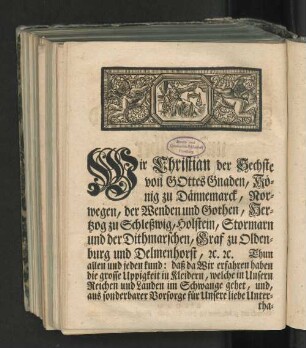 Wir Christian der Sechste
von GOttes Gnaden, Kö-
nig zu Dännemarck, Nor-
wegen, der Wenden und Gothen, Her-
tzog zu Schleßwig, Holstein, Stormarn
und der Dithmarschen, Graf zu Olden-
burg und Delmenhorst, ꝛc. ꝛc. Thun
allen und jeden kund: daß da Wir erfahren haben
die grosse Uppigkeit in Kleidern, welche in Unsern
Reichen und Landen im Schwange gehet, und,
aus sonderbarer Vorsorge für Unsere liebe Unter-
tha-